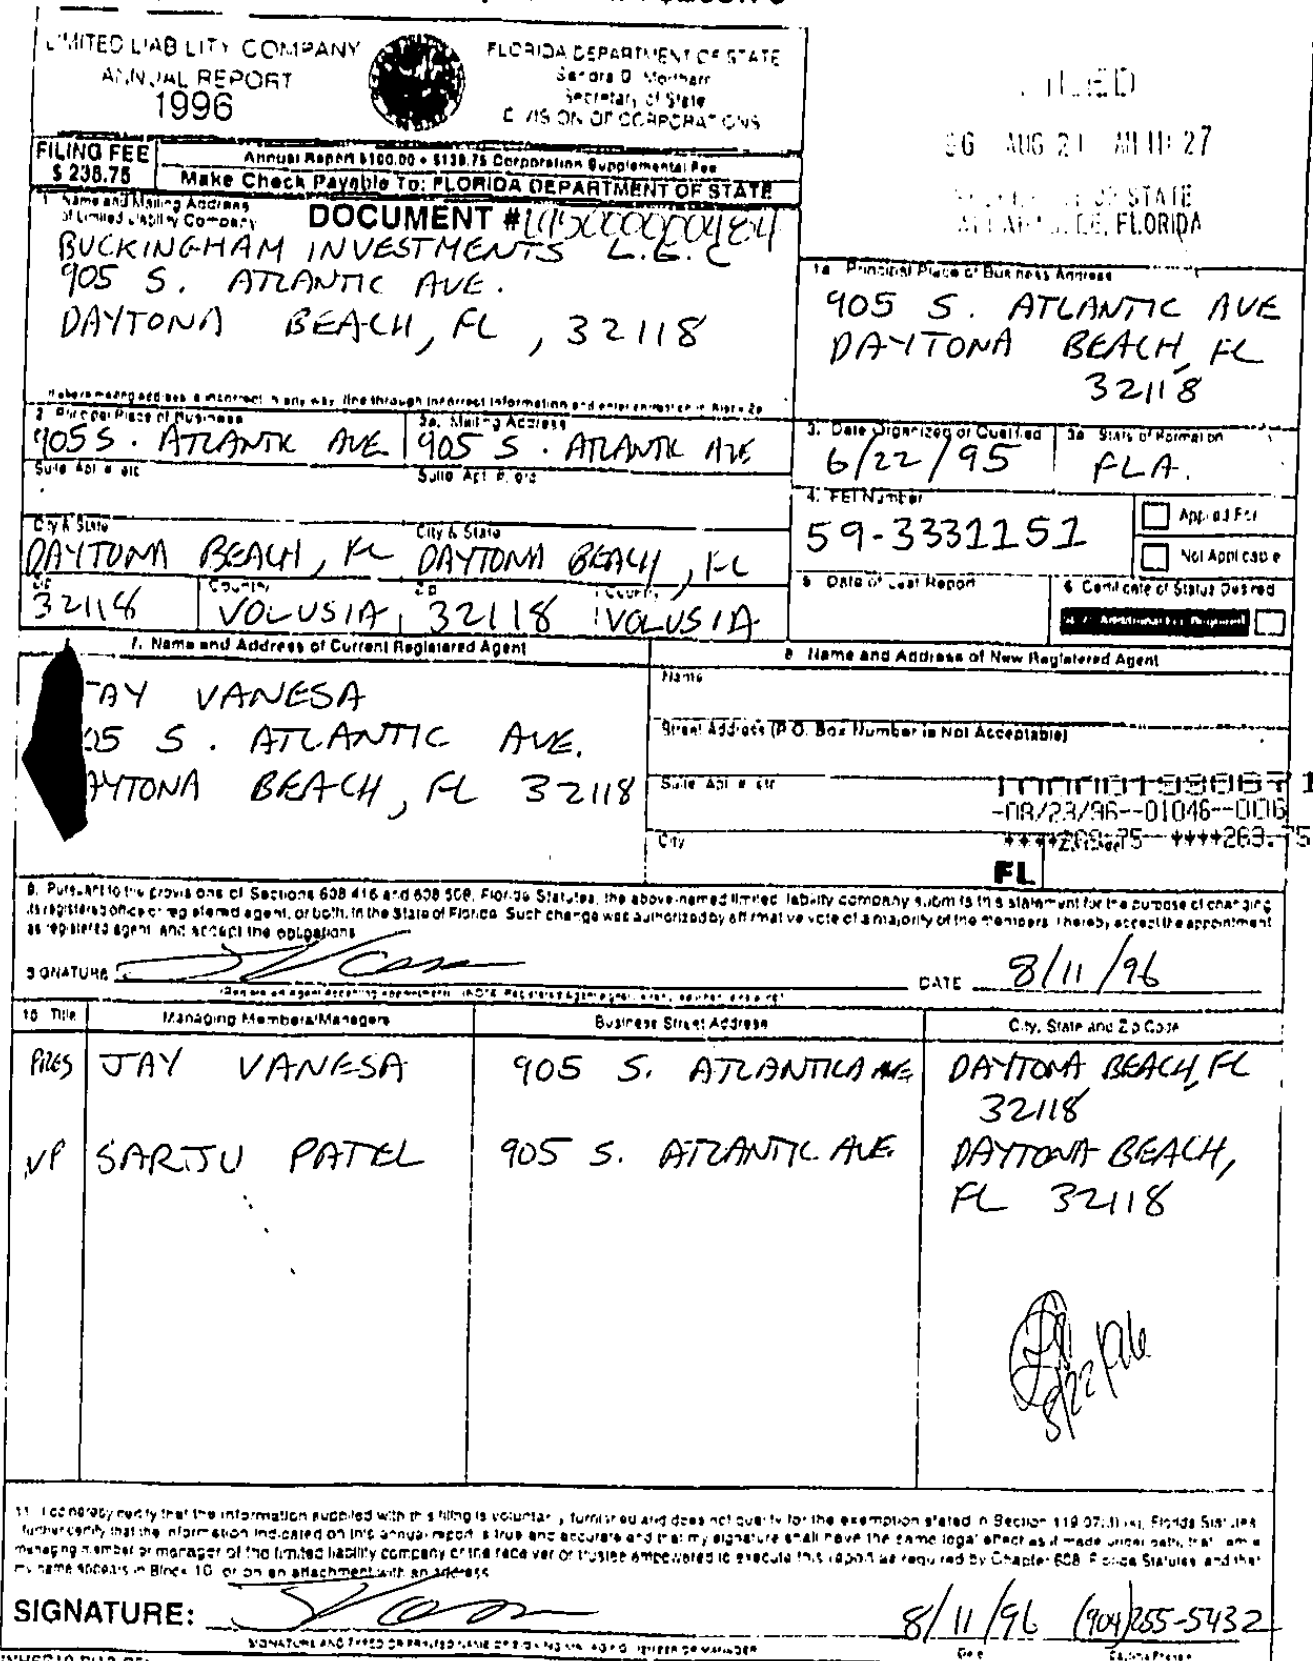 LIMITED LIABILITY COMPANY
ANNUAL REPORT
1996
FLORIDA DEPARTMENT OF STATE
Sandra B. Mortham
Secretary of State
DIVISION OF CORPORATIONS
FILED
96 AUG 21 AM 11:27
OF STATE
FLORIDA
FILING FEE
$ 238.75
Annual Report $100.00 + $138.75 Corporation Supplemental Fee
Make Check Payable To: FLORIDA DEPARTMENT OF STATE
1. Name and Mailing Address
of Limited Liability Company
DOCUMENT #L95000000484
BUCKINGHAM INVESTMENTS L.L.C
905 S. ATLANTIC AVE.
DAYTONA BEACH, FL, 32118
If above mailing address is incorrect in any way, line through incorrect information and enter correction in Block 2a
1a. Principal Place of Business Address
905 S. ATLANTIC AVE
DAYTONA BEACH, FL
32118
2. Principal Place of Business
905 S. ATLANTIC AVE
2a. Mailing Address
905 S. ATLANTIC AVE
Suite, Apt. #, etc.
Suite, Apt. #, etc.
City & State
DAYTONA BEACH, FL
City & State
DAYTONA BEACH, FL
Zip
32118
Country
VOLUSIA
Zip
32118
Country
VOLUSIA
3. Date Organized or Qualified
6/22/95
3a. State of Formation
FLA.
4. FEI Number
59-3331151
Applied For
Not Applicable
5. Date of Last Report
6. Certificate of Status Desired
Additional Fee Required
7. Name and Address of Current Registered Agent
JAY VANESA
905 S. ATLANTIC AVE.
DAYTONA BEACH, FL 32118
8. Name and Address of New Registered Agent
Name
Street Address (P.O. Box Number is Not Acceptable)
Suite, Apt. #, etc.
-08/23/96--01046--006
****263.75
City
FL
9. Pursuant to the provisions of Sections 608.416 and 608.508, Florida Statutes, the above-named limited liability company submits this statement for the purpose of changing
its registered office or registered agent, or both, in the State of Florida. Such change was authorized by affirmative vote of a majority of the members. I hereby accept the appointment
as registered agent, and accept the obligations
SIGNATURE
DATE 8/11/96
(Registered Agent Accepting Appointment)
10. Title
Managing Members/Managers
Business Street Address
City, State and Zip Code
PRES JAY VANESA 905 S. ATLANTIC AVE DAYTONA BEACH, FL
32118
VP SARJU PATEL 905 S. ATLANTIC AVE. DAYTONA BEACH,
FL 32118
8/22/96
11. I do hereby certify that the information supplied with this filing is voluntarily furnished and does not qualify for the exemption stated in Section 119.07(3)(k), Florida Statutes. I
further certify that the information indicated on this annual report is true and accurate and that my signature shall have the same legal effect as if made under oath; that I am a
managing member or manager of the limited liability company or the receiver or trustee empowered to execute this report as required by Chapter 608, Florida Statutes, and that
my name appears in Block 10, or on an attachment with an address.
SIGNATURE:
8/11/96 (904)255-5432
SIGNATURE AND TYPED OR PRINTED NAME OF SIGNING MANAGING MEMBER OR MANAGER
Date
Daytime Phone #